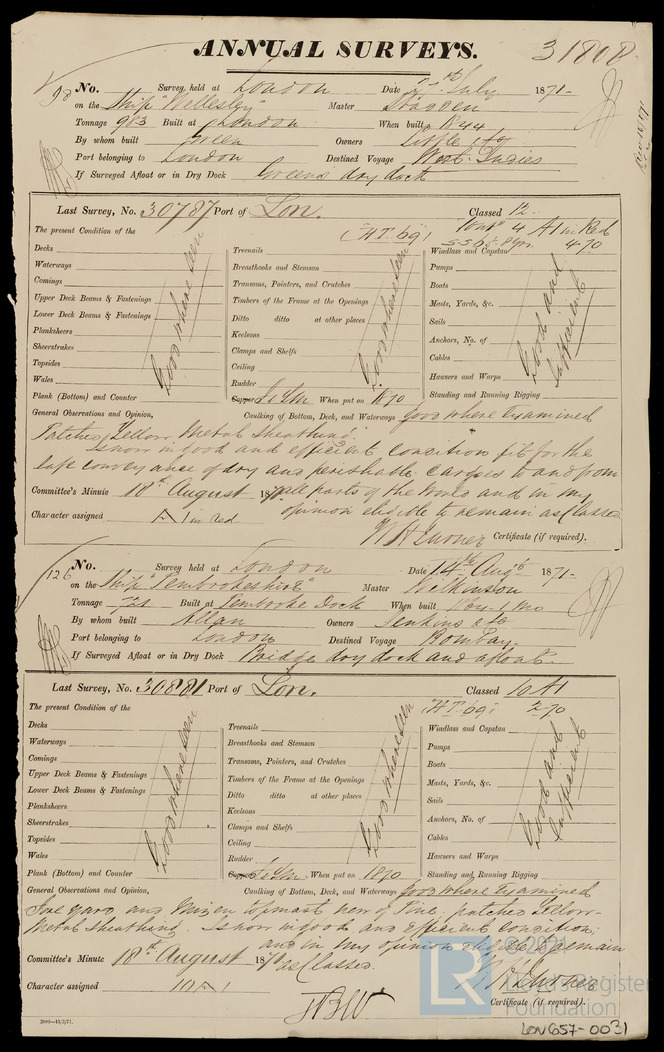 ANNUAL SURVEYS.
31808
98 No. Survey held at London Date July 1871-
on the Ship "Wellesley" Master
Tonnage 983 Built at London When built 1844
By whom built Green Owners Little & Co
Port belonging to London Destined Voyage West Indies
If Surveyed Afloat or in Dry Dock Greens dry dock
Last Survey, No. 30787 Port of Lon. Classed 12-
Cont^d 4 A1 in Red
The present Condition of the (H.T. 69) 4.70
Decks Treenails Windlass and Capstan
Waterways Breasthooks and Stemson Pumps
Comings Transoms, Pointers, and Crutches Boats
Upper Deck Beams & Fastenings Timbers of the Frame at the Openings Masts, Yards, &c.
Lower Deck Beams & Fastenings Ditto ditto at other places Sails
Planksheers Keelsons Anchors, No. of
Sheerstrakes Clamps and Shelfs Cables
Topsides Ceiling Hawsers and Warps
Wales Rudder Standing and Running Rigging
Good where seen
Good where seen
Good and Sufficient
Plank (Bottom) and Counter Copper Y.M. When put on 1870
General Observations and Opinion, Caulking of Bottom, Deck, and Waterways Good where Examined
Patches Yellow Metal Sheathing.
Is now in good and efficient condition fit for the
safe conveyance of dry and perishable Cargoes to and from
all parts of the World and in my
Committee's Minute 18th August 187
opinion eligible to remain as Classed
Character assigned A1 in red
W H Turner Certificate (if required).
126 No. Survey held at London Date 14th Aug 1871-
on the Ship "Pembrokeshire" Master Wilkinson
Tonnage Built at Pembroke Dock When built
By whom built Allan Owners Jenkins & Co
Port belonging to London Destined Voyage Bombay.
If Surveyed Afloat or in Dry Dock Bridge dry dock and afloat.
Last Survey, No. 30881 Port of Lon. Classed 10 A1
The present Condition of the (H.T. 69) 2.70
Decks Treenails Windlass and Capstan
Waterways Breasthooks and Stemson Pumps
Comings Transoms, Pointers, and Crutches Boats
Upper Deck Beams & Fastenings Timbers of the Frame at the Openings Masts, Yards, &c.
Lower Deck Beams & Fastenings Ditto ditto at other places Sails
Planksheers Keelsons Anchors, No. of
Sheerstrakes Clamps and Shelfs Cables
Topsides Ceiling Hawsers and Warps
Wales Rudder Standing and Running Rigging
Good where seen
Good where seen
Good and Sufficient
Plank (Bottom) and Counter Copper Y.M. When put on 1870
General Observations and Opinion, Caulking of Bottom, Deck, and Waterways Good where Examined
Fore yard and Mizen topmast new of Pine, patches Yellow
Metal Sheathing. Is now in good and efficient condition,
and in my opinion eligible to remain
Committee's Minute 18th August 187 as Classed.
Character assigned 10 A 1
W H Turner
Certificate (if required).
2000-13/2/71.
© 2021
LR
Lloyd's Register
Foundation
LON657-0031